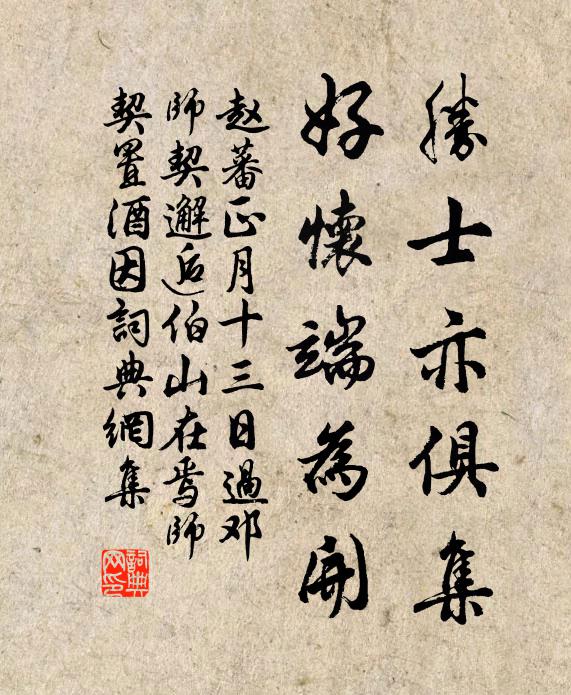 勝士亦俱集
好懷端為開
赵蕃正月十三日過邓
師契邂逅伯山在焉師
契置酒因詞典網集
詞典
网印